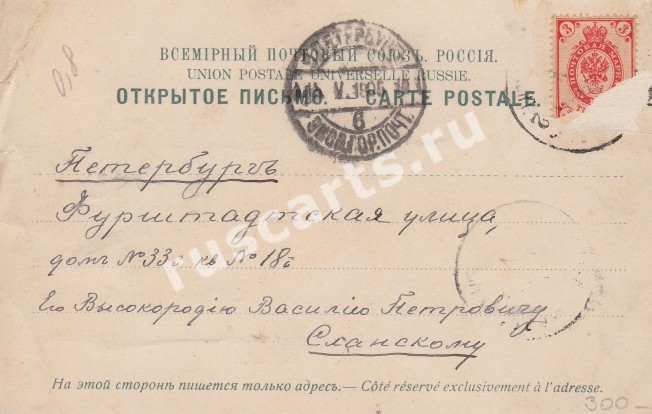 0,8
ВСЕМІРНЫЙ ПОЧТОВЫЙ СОЮЗЪ. РОССІЯ.
UNION POSTALE UNIVERSELLE RUSSIE.
ОТКРЫТОЕ ПИСЬМО. — CARTE POSTALE.
3 3
6
ГОР.ПОЧТ.
Петербургъ
Фурштадтская улица,
домъ №33а кв №18й
Его Высокородію Василію Петровичу
Сланскому
ruscarts.ru
На этой сторонѣ пишется только адресъ.— Côté réservé exclusivement à l'adresse.
300—